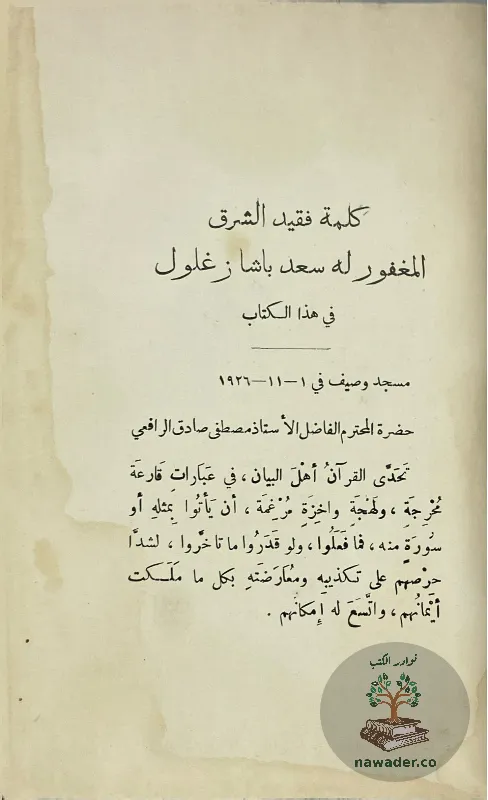 كلمة فقيد الشرق
المغفور له سعد باشا زغلول
في هذا الكتاب
مسجد وصيف في ١ – ١١ – ١٩٢٦
حضرة المحترم الفاضل الأستاذ مصطفى صادق الرافعي
تحَدَّى القرآنُ أهْلَ البيان، في عبَاراتٍ قارعَة
مُحْرِجةٍ، ولَهجَةٍ واخِزَةٍ مُرْغِمَة، أن يَأتُوا بِمثلِهِ أو
سُورَةٍ منه، فما فعَلُوا، ولو قدَرُوا ما تأخَّروا، لشدَّة
حرْصهم على تكذيبِهِ ومُعَارَضَتهِ بكل ما مَلَكت
أيْمانُهم، واتَّسَعَ له إمكانُهم.
نوادر الكتب
nawader.co